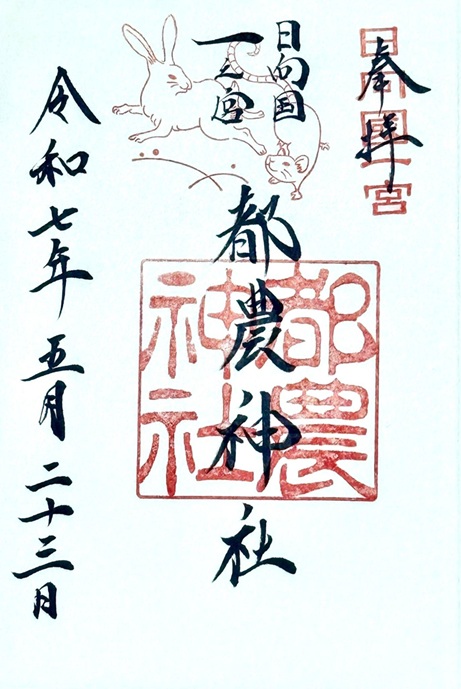 奉拝
日向国一宮
日向国
一之宮
都農神社
都農
神社
令和七年 五月 二十三日